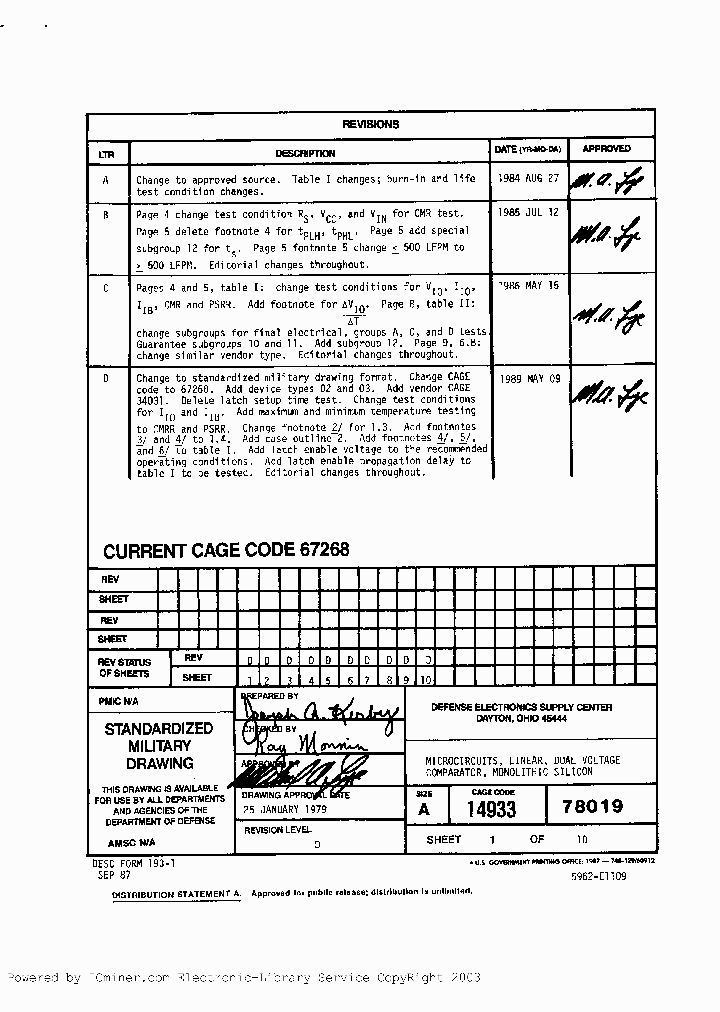 REVISIONS
LTR DESCRIPTION DATE (YR-MO-DA) APPROVED
A Change to approved source. Table I changes; burn-in and life 1984 AUG 27
test condition changes.
B Page 4 change test condition RS, VCC, and VIN for CMR test. 1985 JUL 12
Page 5 delete footnote 4 for tPLH, tPHL. Page 5 add special
subgroup 12 for tS. Page 5 footnote 5 change ≤ 500 LFPM to
≥ 500 LFPM. Editorial changes throughout.
C Pages 4 and 5, table I: change test conditions for VIO, IIO, 1986 MAY 16
IIB, CMR and PSRR. Add footnote for ΔVIO. Page 8, table II:
ΔT
change subgroups for final electrical, groups A, C, and D tests.
Guarantee subgroups 10 and 11. Add subgroup 12. Page 9, 6.8:
change similar vendor type. Editorial changes throughout.
D Change to standardized military drawing format. Change CAGE 1989 MAY 09
code to 67268. Add device types 02 and 03. Add vendor CAGE
34031. Delete latch setup time test. Change test conditions
for IIO and IIB. Add maximum and minimum temperature testing
to CMRR and PSRR. Change footnote 2/ for 1.3. Add footnotes
3/ and 4/ to 1.4. Add case outline 2. Add footnotes 4/, 5/,
and 6/ to table I. Add latch enable voltage to the recommended
operating conditions. Add latch enable propagation delay to
table I to be tested. Editorial changes throughout.
CURRENT CAGE CODE 67268
REV
SHEET
REV
SHEET
REV STATUS OF SHEETS REV D D D D D D D D D D
SHEET 1 2 3 4 5 6 7 8 9 10
PMIC N/A
STANDARDIZED
MILITARY
DRAWING
THIS DRAWING IS AVAILABLE
FOR USE BY ALL DEPARTMENTS
AND AGENCIES OF THE
DEPARTMENT OF DEFENSE
AMSC N/A
PREPARED BY
CHECKED BY
Ray Monnin
APPROVED BY
DRAWING APPROVAL DATE
25 JANUARY 1979
REVISION LEVEL
D
DEFENSE ELECTRONICS SUPPLY CENTER
DAYTON, OHIO 45444
MICROCIRCUITS, LINEAR, DUAL VOLTAGE
COMPARATOR, MONOLITHIC SILICON
SIZE A CAGE CODE 14933 78019
SHEET 1 OF 10
DESC FORM 193-1
SEP 87
* U.S. GOVERNMENT PRINTING OFFICE: 1987 — 748-129/60912
5962-E1109
DISTRIBUTION STATEMENT A. Approved for public release; distribution is unlimited.
Powered by ICminer.com Electronic-Library Service CopyRight 2003